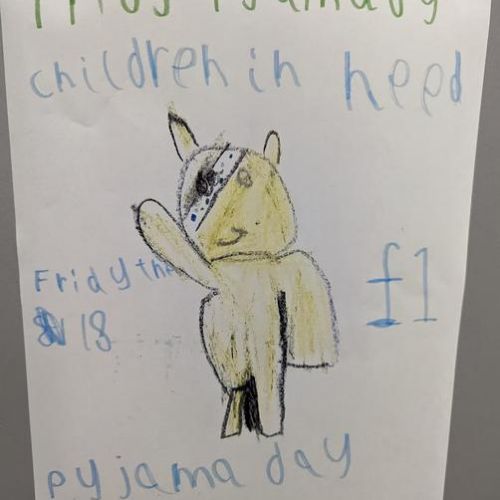 children in need
Fridy the
18
£1
pyjama day